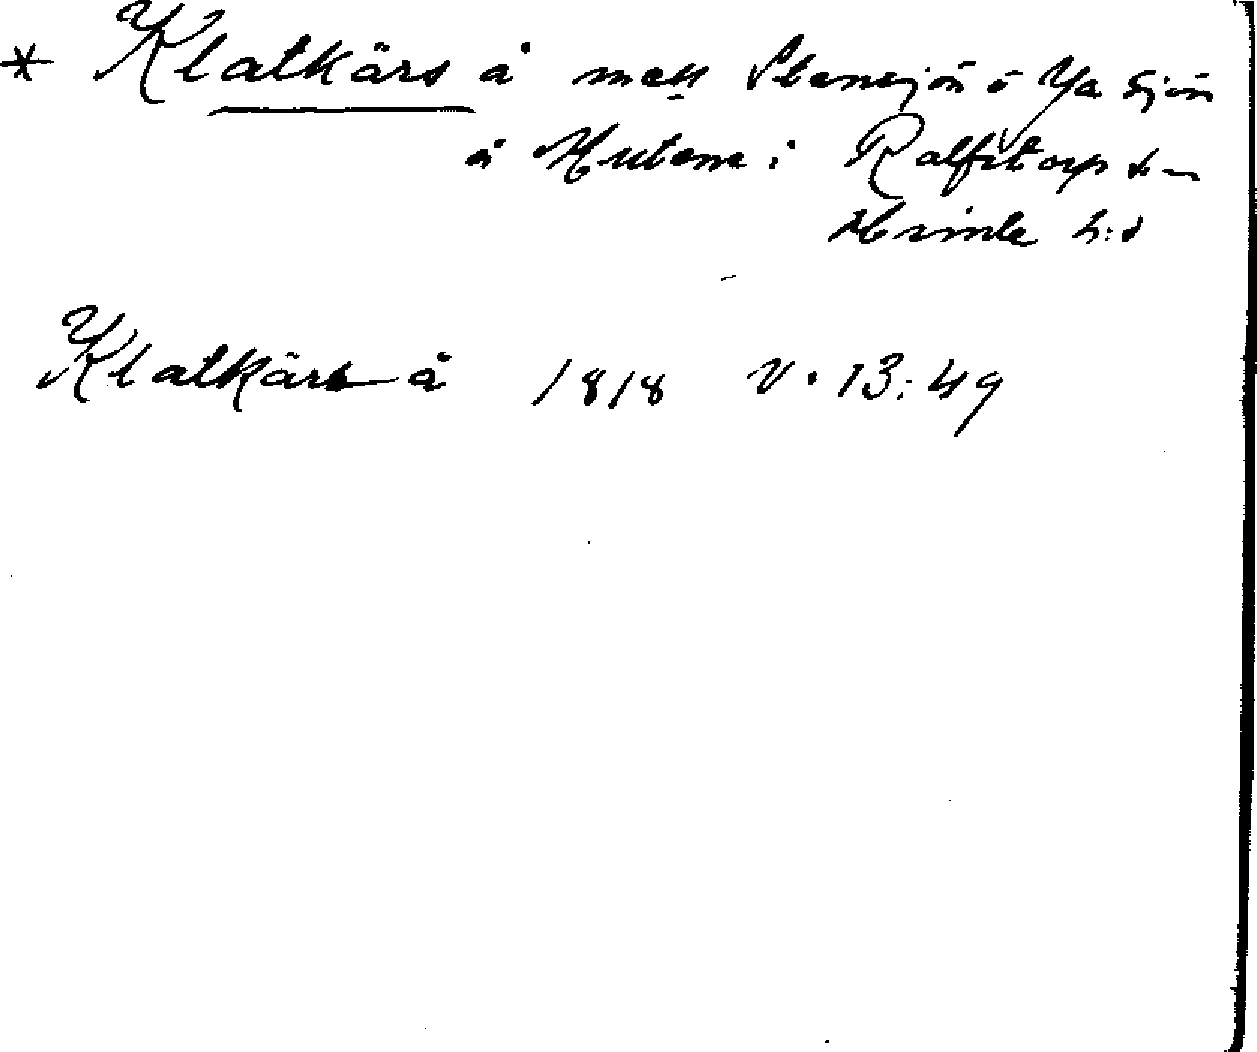 * Klatkärs å mell Stensjön o Ya sjön
å Hulans i Rolfstorp s-n
Himle h:d
Klatkärs å 1818 V. 13:49